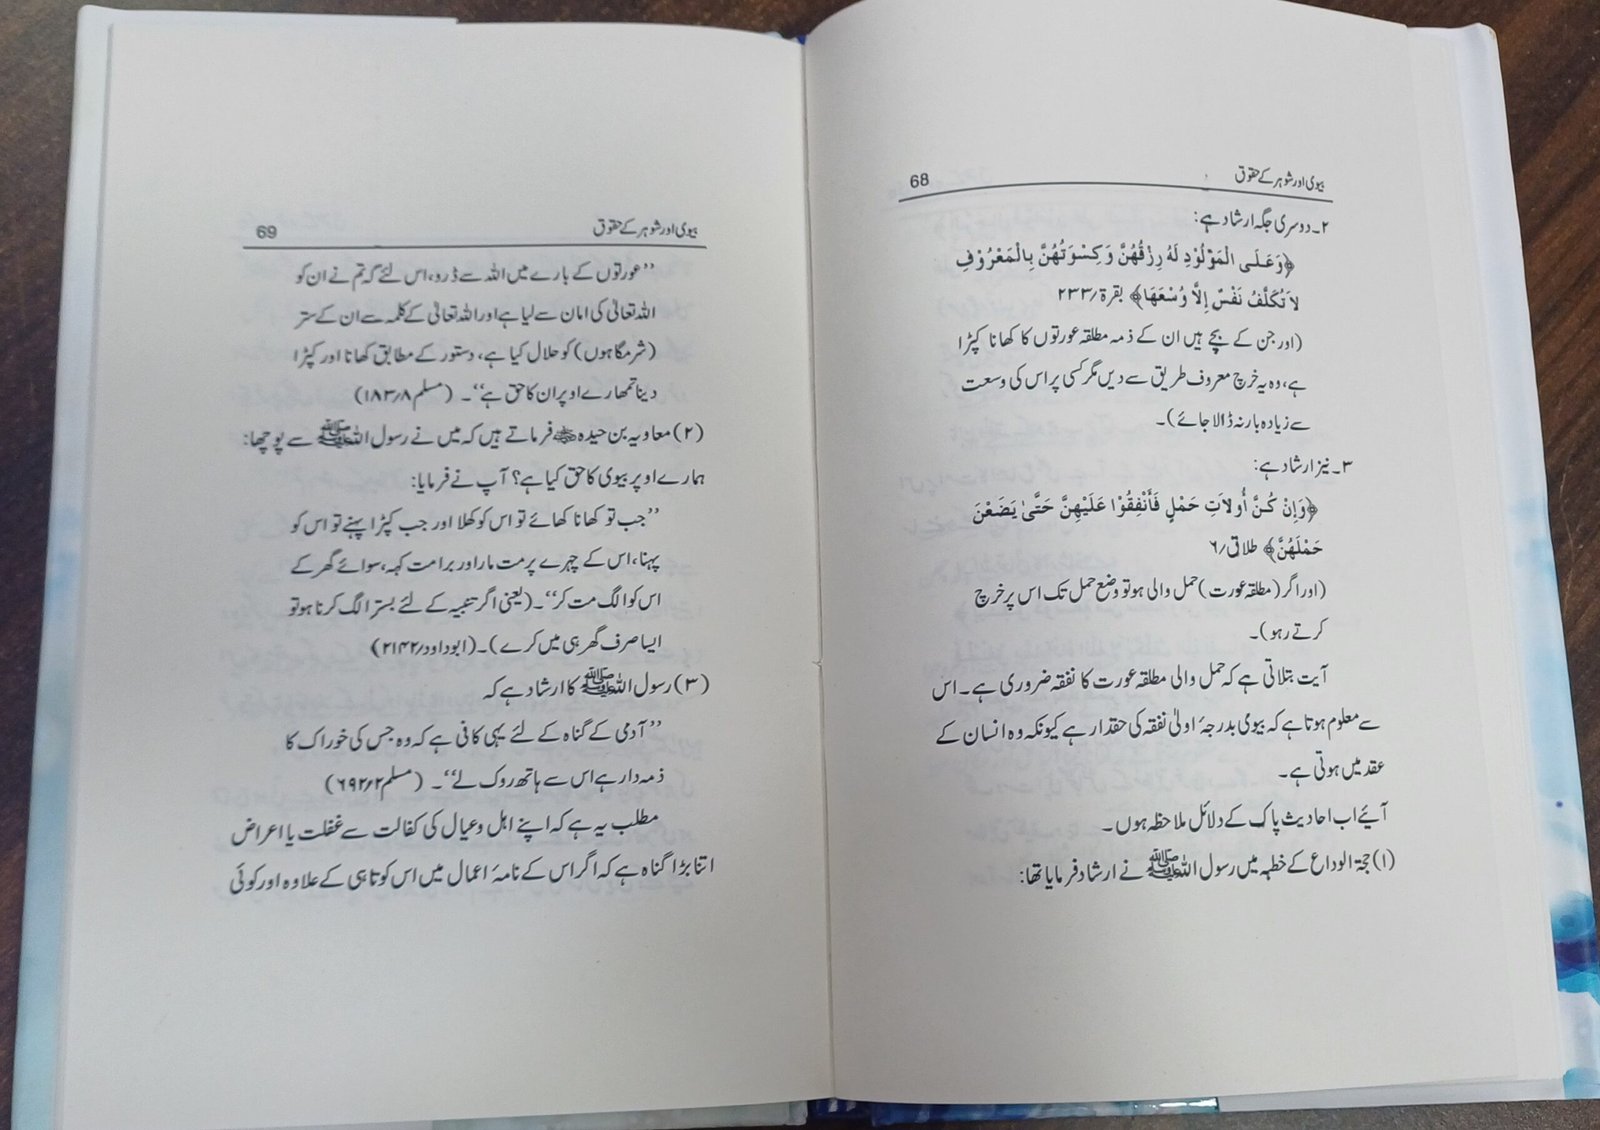 بیوی اور شوہر کے حقوق 68
۲۔ دوسری جگہ ارشاد ہے:
﴿وَعَلَى الْمَوْلُوْدِ لَهُ رِزْقُهُنَّ وَكِسْوَتُهُنَّ بِالْمَعْرُوْفِ
لاَ تُكَلَّفُ نَفْسٌ إِلَّا وُسْعَهَا﴾ بقرۃ؍۲۳۳
(اور جن کے بچے ہیں ان کے ذمہ مطلقہ عورتوں کا کھانا کپڑا
ہے، وہ یہ خرچ معروف طریق سے دیں مگر کسی پر اس کی وسعت
سے زیادہ بار نہ ڈالا جائے)۔
۳۔ نیز ارشاد ہے:
﴿وَإِنْ كُنَّ أُولاَتِ حَمْلٍ فَأَنْفِقُوْا عَلَيْهِنَّ حَتَّىٰ يَضَعْنَ
حَمْلَهُنَّ﴾ طلاق؍۶
(اور اگر (مطلقہ عورت) حمل والی ہو تو وضع حمل تک اس پر خرچ
کرتے رہو)۔
آیت بتلاتی ہے کہ حمل والی مطلقہ عورت کا نفقہ ضروری ہے۔ اس
سے معلوم ہوتا ہے کہ بیوی بدرجۂ اولیٰ نفقہ کی حقدار ہے کیونکہ وہ انسان کے
عقد میں ہوتی ہے۔
آیئے اب احادیث پاک کے دلائل ملاحظہ ہوں۔
(۱) حجۃ الوداع کے خطبہ میں رسول اللہ ﷺ نے ارشاد فرمایا تھا:
بیوی اور شوہر کے حقوق 69
’’عورتوں کے بارے میں اللہ سے ڈرو، اس لئے کہ تم نے ان کو
اللہ تعالیٰ کی امان سے لیا ہے اور اللہ تعالیٰ کے کلمہ سے ان کے ستر
(شرمگاہوں) کو حلال کیا ہے، دستور کے مطابق کھانا اور کپڑا
دینا تمھارے اوپر ان کا حق ہے‘‘۔ (مسلم ۸؍۱۸۳)
(۲) معاویہ بن حیدہ ؓ فرماتے ہیں کہ میں نے رسول اللہ ﷺ سے پوچھا:
ہمارے اوپر بیوی کا حق کیا ہے؟ آپ نے فرمایا:
’’جب تو کھانا کھائے تو اس کو کھلا اور جب کپڑا پہنے تو اس کو
پہنا، اس کے چہرے پر مت مار اور برا مت کہہ، سوائے گھر کے
اس کو الگ مت کر‘‘۔ (یعنی اگر تنبیہ کے لئے بستر الگ کرنا ہو تو
ایسا صرف گھر ہی میں کرے)۔ (ابوداود؍۲۱۴۲)
(۳) رسول اللہ ﷺ کا ارشاد ہے کہ
’’آدمی کے گناہ کے لئے یہی کافی ہے کہ وہ جس کی خوراک کا
ذمہ دار ہے اس سے ہاتھ روک لے‘‘۔ (مسلم ۲؍۶۹۲)
مطلب یہ ہے کہ اپنے اہل وعیال کی کفالت سے غفلت یا اعراض
اتنا بڑا گناہ ہے کہ اگر اس کے نامۂ اعمال میں اس کوتاہی کے علاوہ اور کوئی